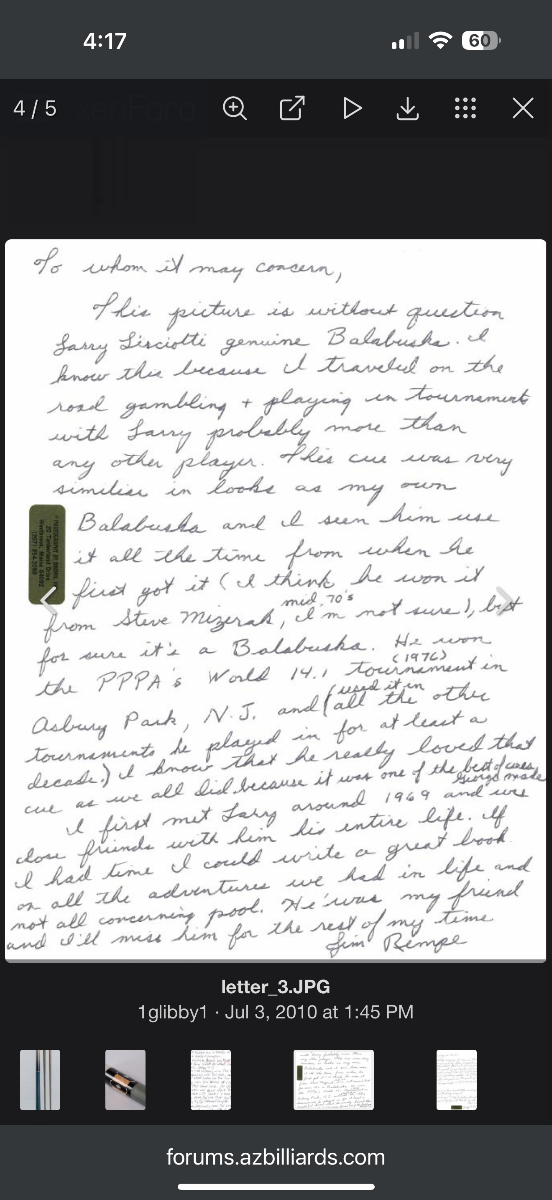 4:17
60
4 / 5
To whom it may concern,
This picture is without question
Larry Lisciotti genuine Balabuska. I
know this because I traveled on the
road gambling + playing in tournaments
with Larry probably more than
any other player. This cue was very
similiar in looks as my own
Balabuska and I seen him use
it all the time from when he
first got it (I think he won it
mid 70's
from Steve Mizerak, I'm not sure), but
for sure it's a Balabuska. He won
(1976)
the PPPA's World 14.1 tournament in
(used it in
Asbury Park, N.J. and all the other
tournaments he played in for at least a
decade.) I know that he really loved that
cue as we all did because it was one of the best of cues
George made
I first met Larry around 1969 and was
close friends with him his entire life. If
I had time I could write a great book
on all the adventures we had in life and
not all concerning pool. He was my friend
and I'll miss him for the rest of my time
Jim Rempe
letter_3.JPG
1glibby1 · Jul 3, 2010 at 1:45 PM
forums.azbilliards.com